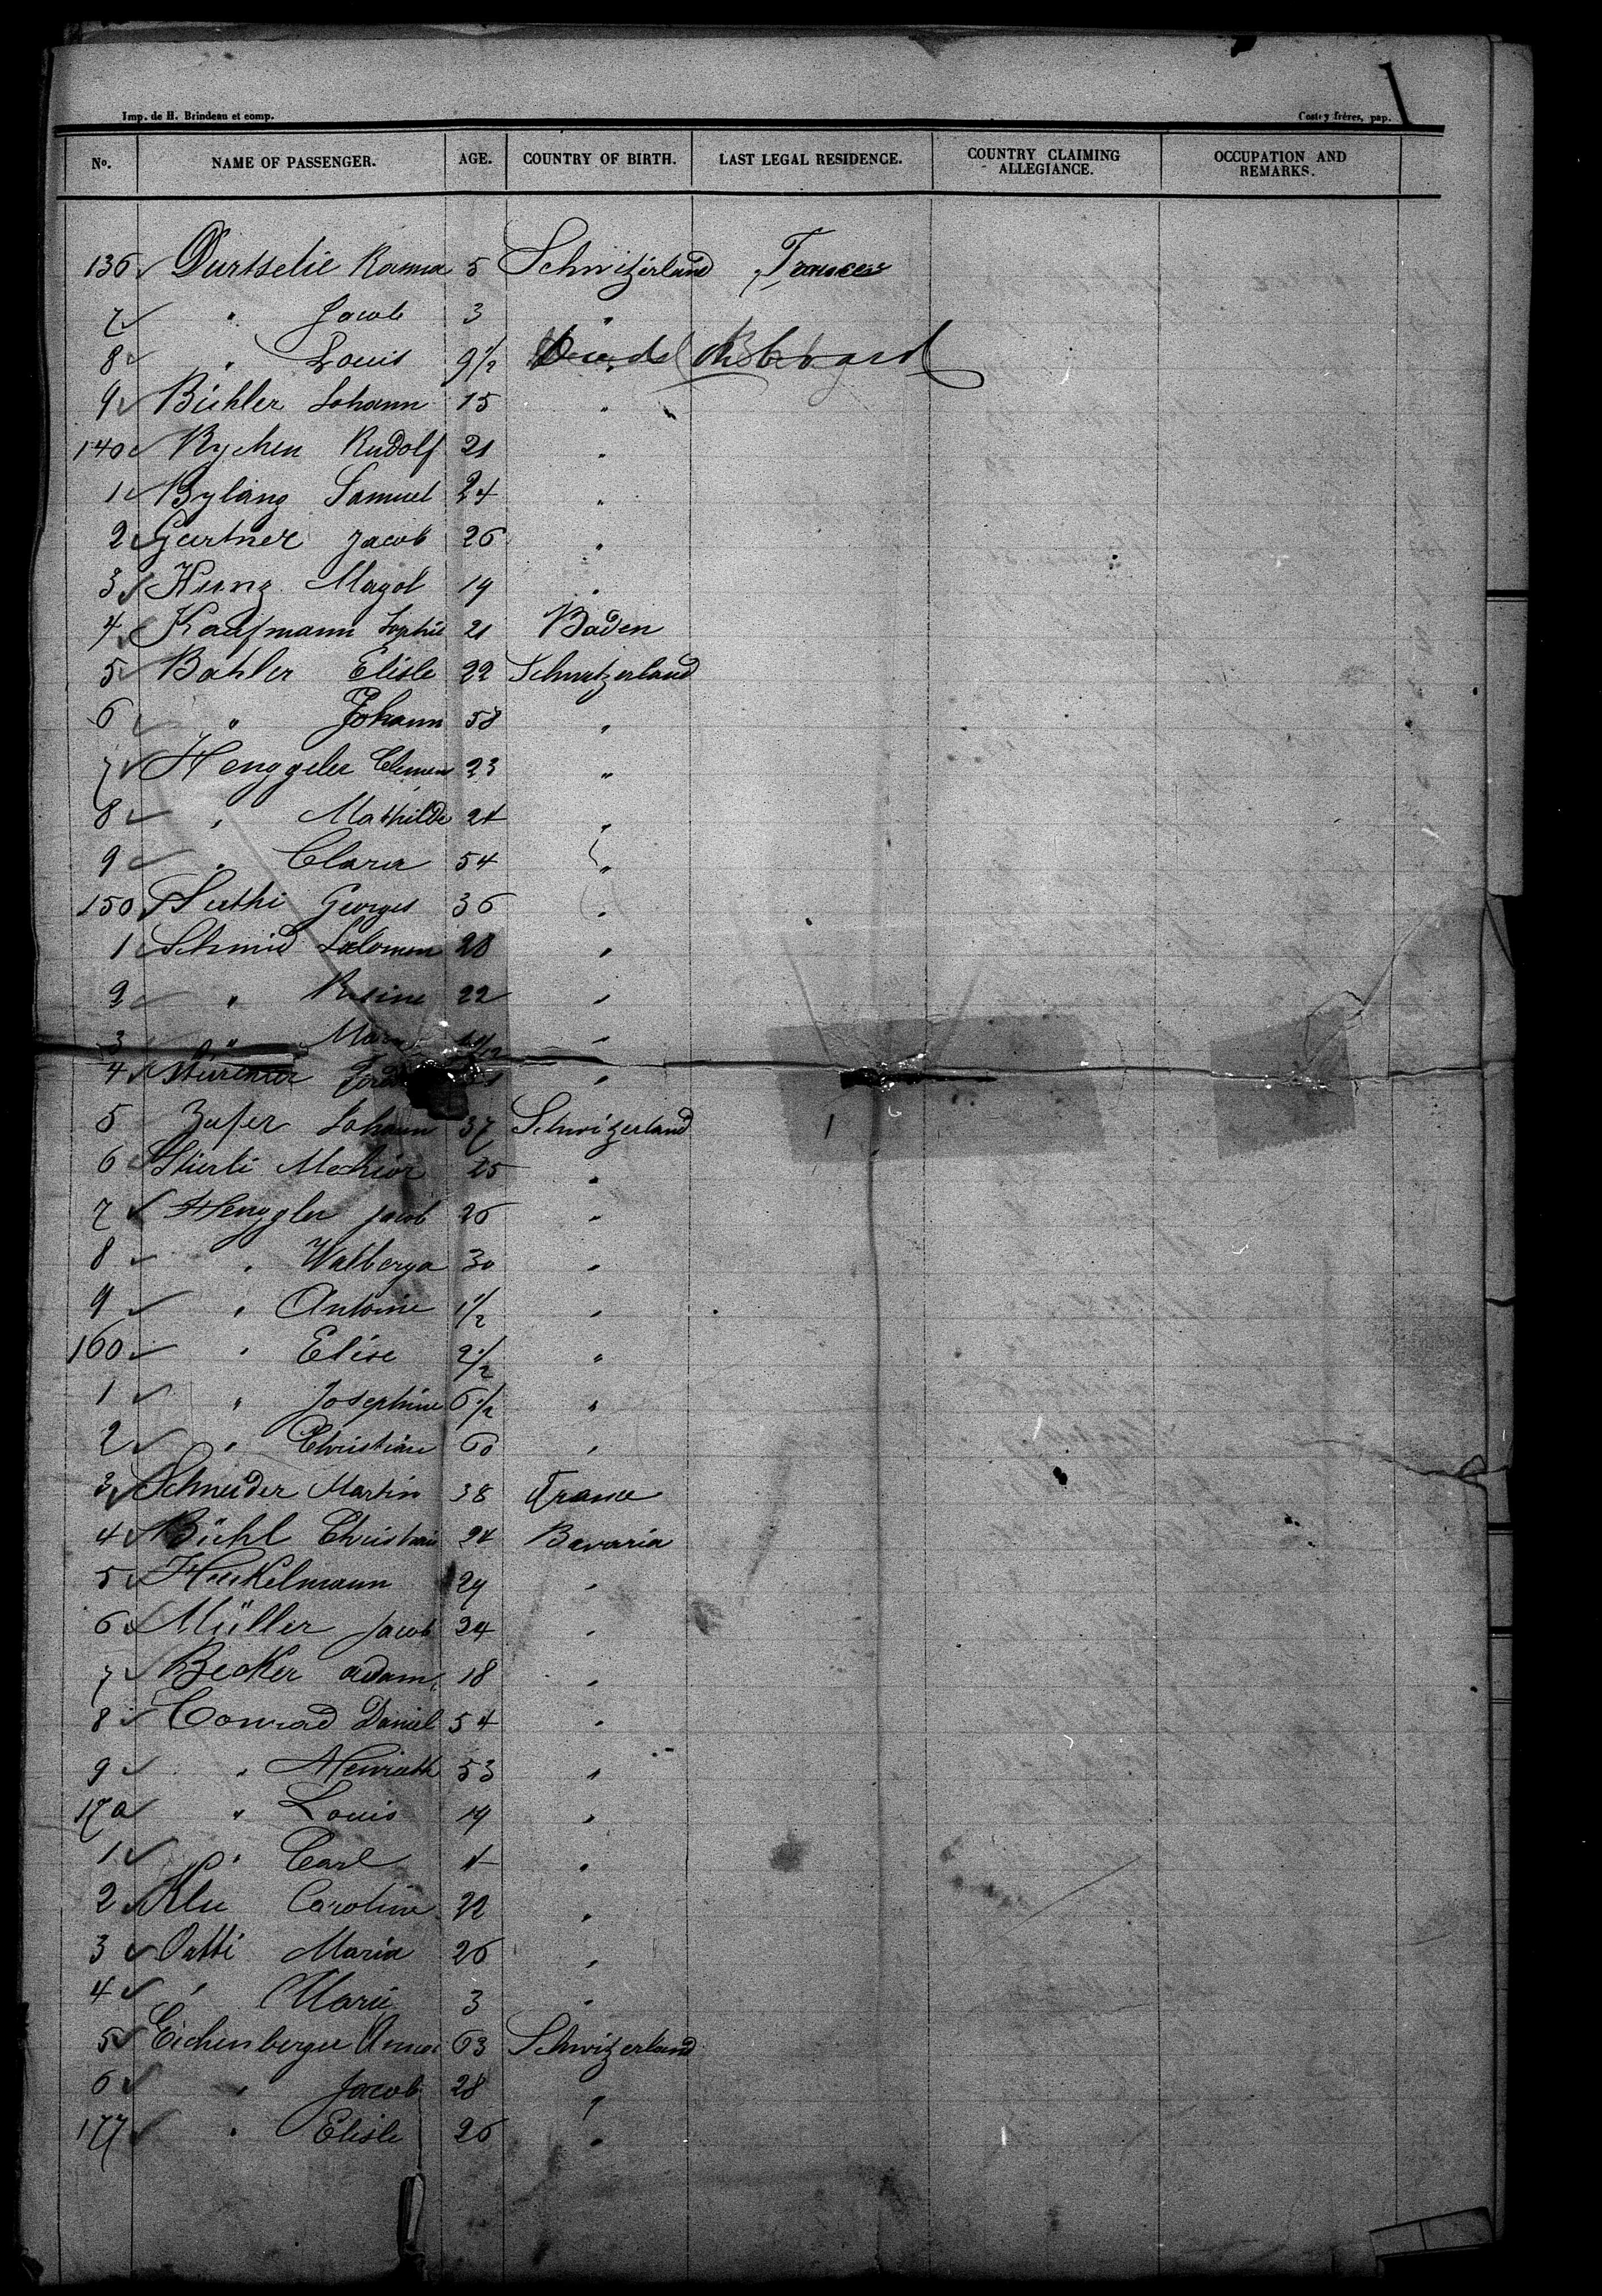 Imp. de H. Brindeau et comp.
Costey frères, pap.
No. NAME OF PASSENGER. AGE. COUNTRY OF BIRTH. LAST LEGAL RESIDENCE. COUNTRY CLAIMING ALLEGIANCE. OCCUPATION AND REMARKS.
136 Durtselie 5 Schwizerland
7 " Jacob 3 "
8 " Louis 9 1/2 "
9 Bichler Johann 15 "
140 Rychen Rudolf 21 "
1 Bylang Samuel 24 "
2 Gartner Jacob 26 "
3 Kunz 19 "
4 Kaufmann Sophie 21 Baden
5 Bahler Elisle 22 Schwizerland
6 " Johann 58 "
7 Henggeler Clemen 23 "
8 " Mathilde 24 "
9 " Clara 54 "
150 Georges 36 "
1 Schmid Salomon 28 "
2 " Rosine 22 "
3 " "
4 "
5 Johann 37 Schwizerland
6 Stierli Mechior 25 "
7 Henggler Jacob 26 "
8 " Walberga 30 "
9 " Antoine 1 1/2 "
160 " Elise 2 1/2 "
1 " Josephine 6 1/2 "
2 " Christine 60 "
3 Schneider Martin 38 France
4 Bühl 24 Bavaria
5 29 "
6 Müller Jacob 24 "
7 Becker Adam 18 "
8 Conrad Daniel 54 "
9 " 53 "
170 " Louis 19 "
1 " Carl "
2 Klee Caroline 22 "
3 Maria 26 "
4 " Marie 3 "
5 Eichenberger Anna 63 Schwizerland
6 " Jacob 28 "
177 " Elisle 26 "